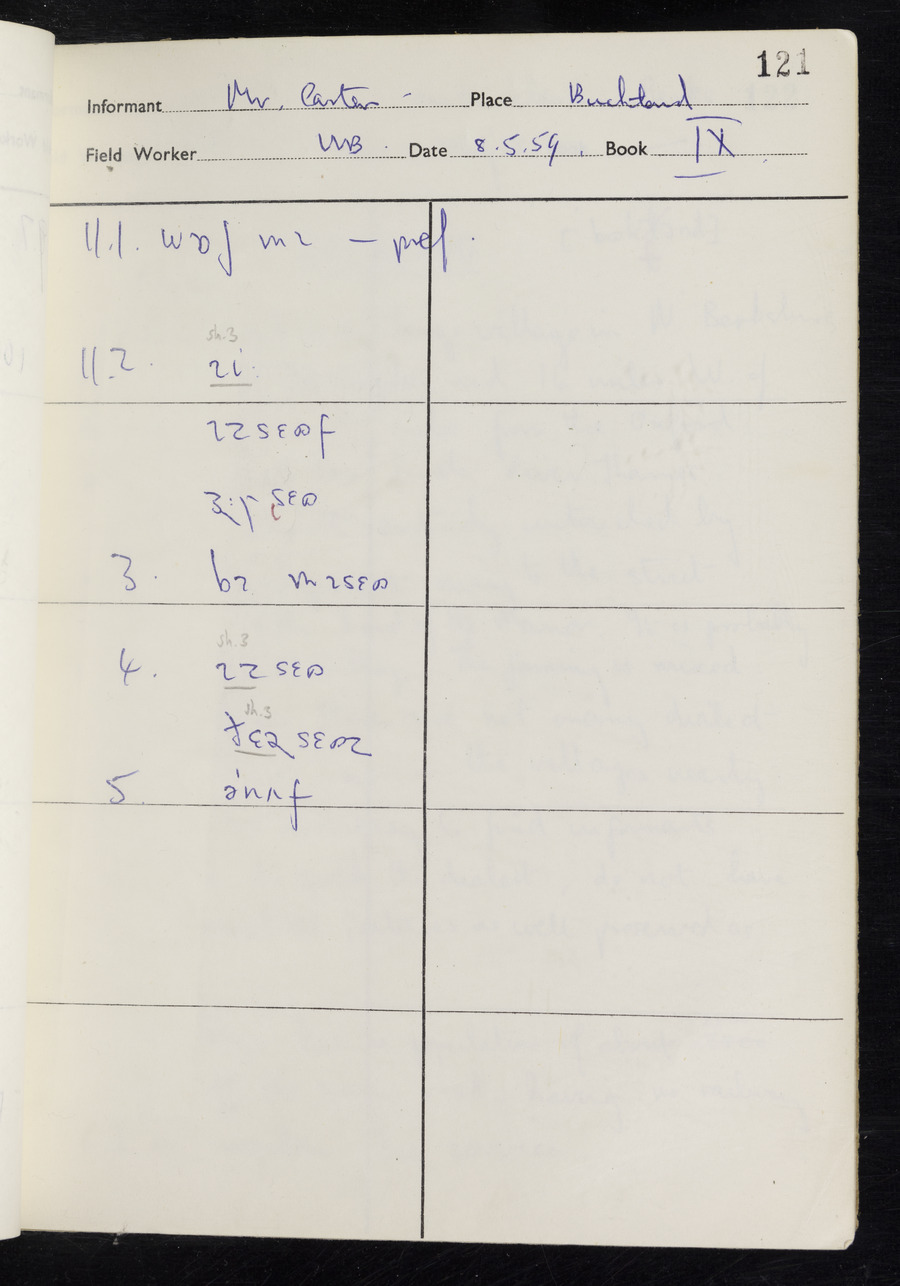 121
Informant Mr. Carter - Place Buckland
Field Worker WB. Date 8.5.59. Book IX
11.1. wɒʃ mɪ — pref.
sh.3
11.2.
ɪzsɛɒf
sɛɒ
3. bɪ mɪsɛɒ
sh.3
4. ɪzsɛɒ
sh.3
ðɛɪsɛɒz
5. ənʌf